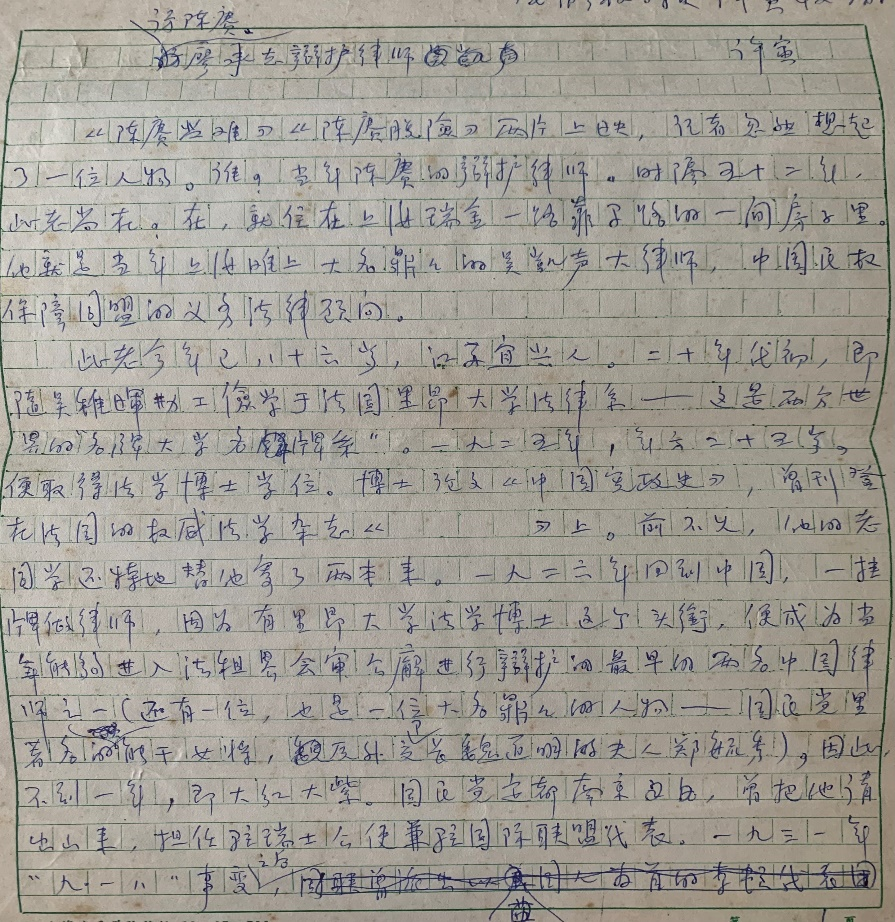 访陈赓、
廖承志辩护律师吴凯声
许寅
《陈赓蒙难》《陈赓脱险》两片上映，记者忽然想起
了一位人物。谁？当年陈赓的辩护律师。时隔五十二年，
此老尚在？在，就住在上海瑞金一路靠子路的一间房子里。
他就是当年上海滩上大名鼎鼎的吴凯声大律师，中国民权
保障同盟的义务法律顾问。
此老今年已八十六岁，江苏宜兴人。二十年代初，即
随吴稚晖勤工俭学于法国里昂大学法律系——这是西方世
界的"名牌大学名牌系"。一九二五年，年方二十五岁，
便取得法学博士学位。博士论文《中国宪政史》，曾刊登
在法国的权威法学杂志《 》上。前不久，他的老
同学还特地替他拿了两本来。一九二六年回到中国，一挂
牌做律师，因为有里昂大学法学博士这个头衔，便成为当
年能够进入法租界会审公廨进行辩护的最早的两名中国律
师之一（还有一位，也是一位大名鼎鼎的人物——国民党里
著名的能干女将，外交长魏道明的夫人郑毓秀），因此，
不到一年，即大红大紫。国民党定都南京之后，曾把他请
出山来，担任驻瑞士公使兼驻国际联盟代表。一九三一年
"九一八"事变之后，国联曾派出以英国人为首的李顿代表团